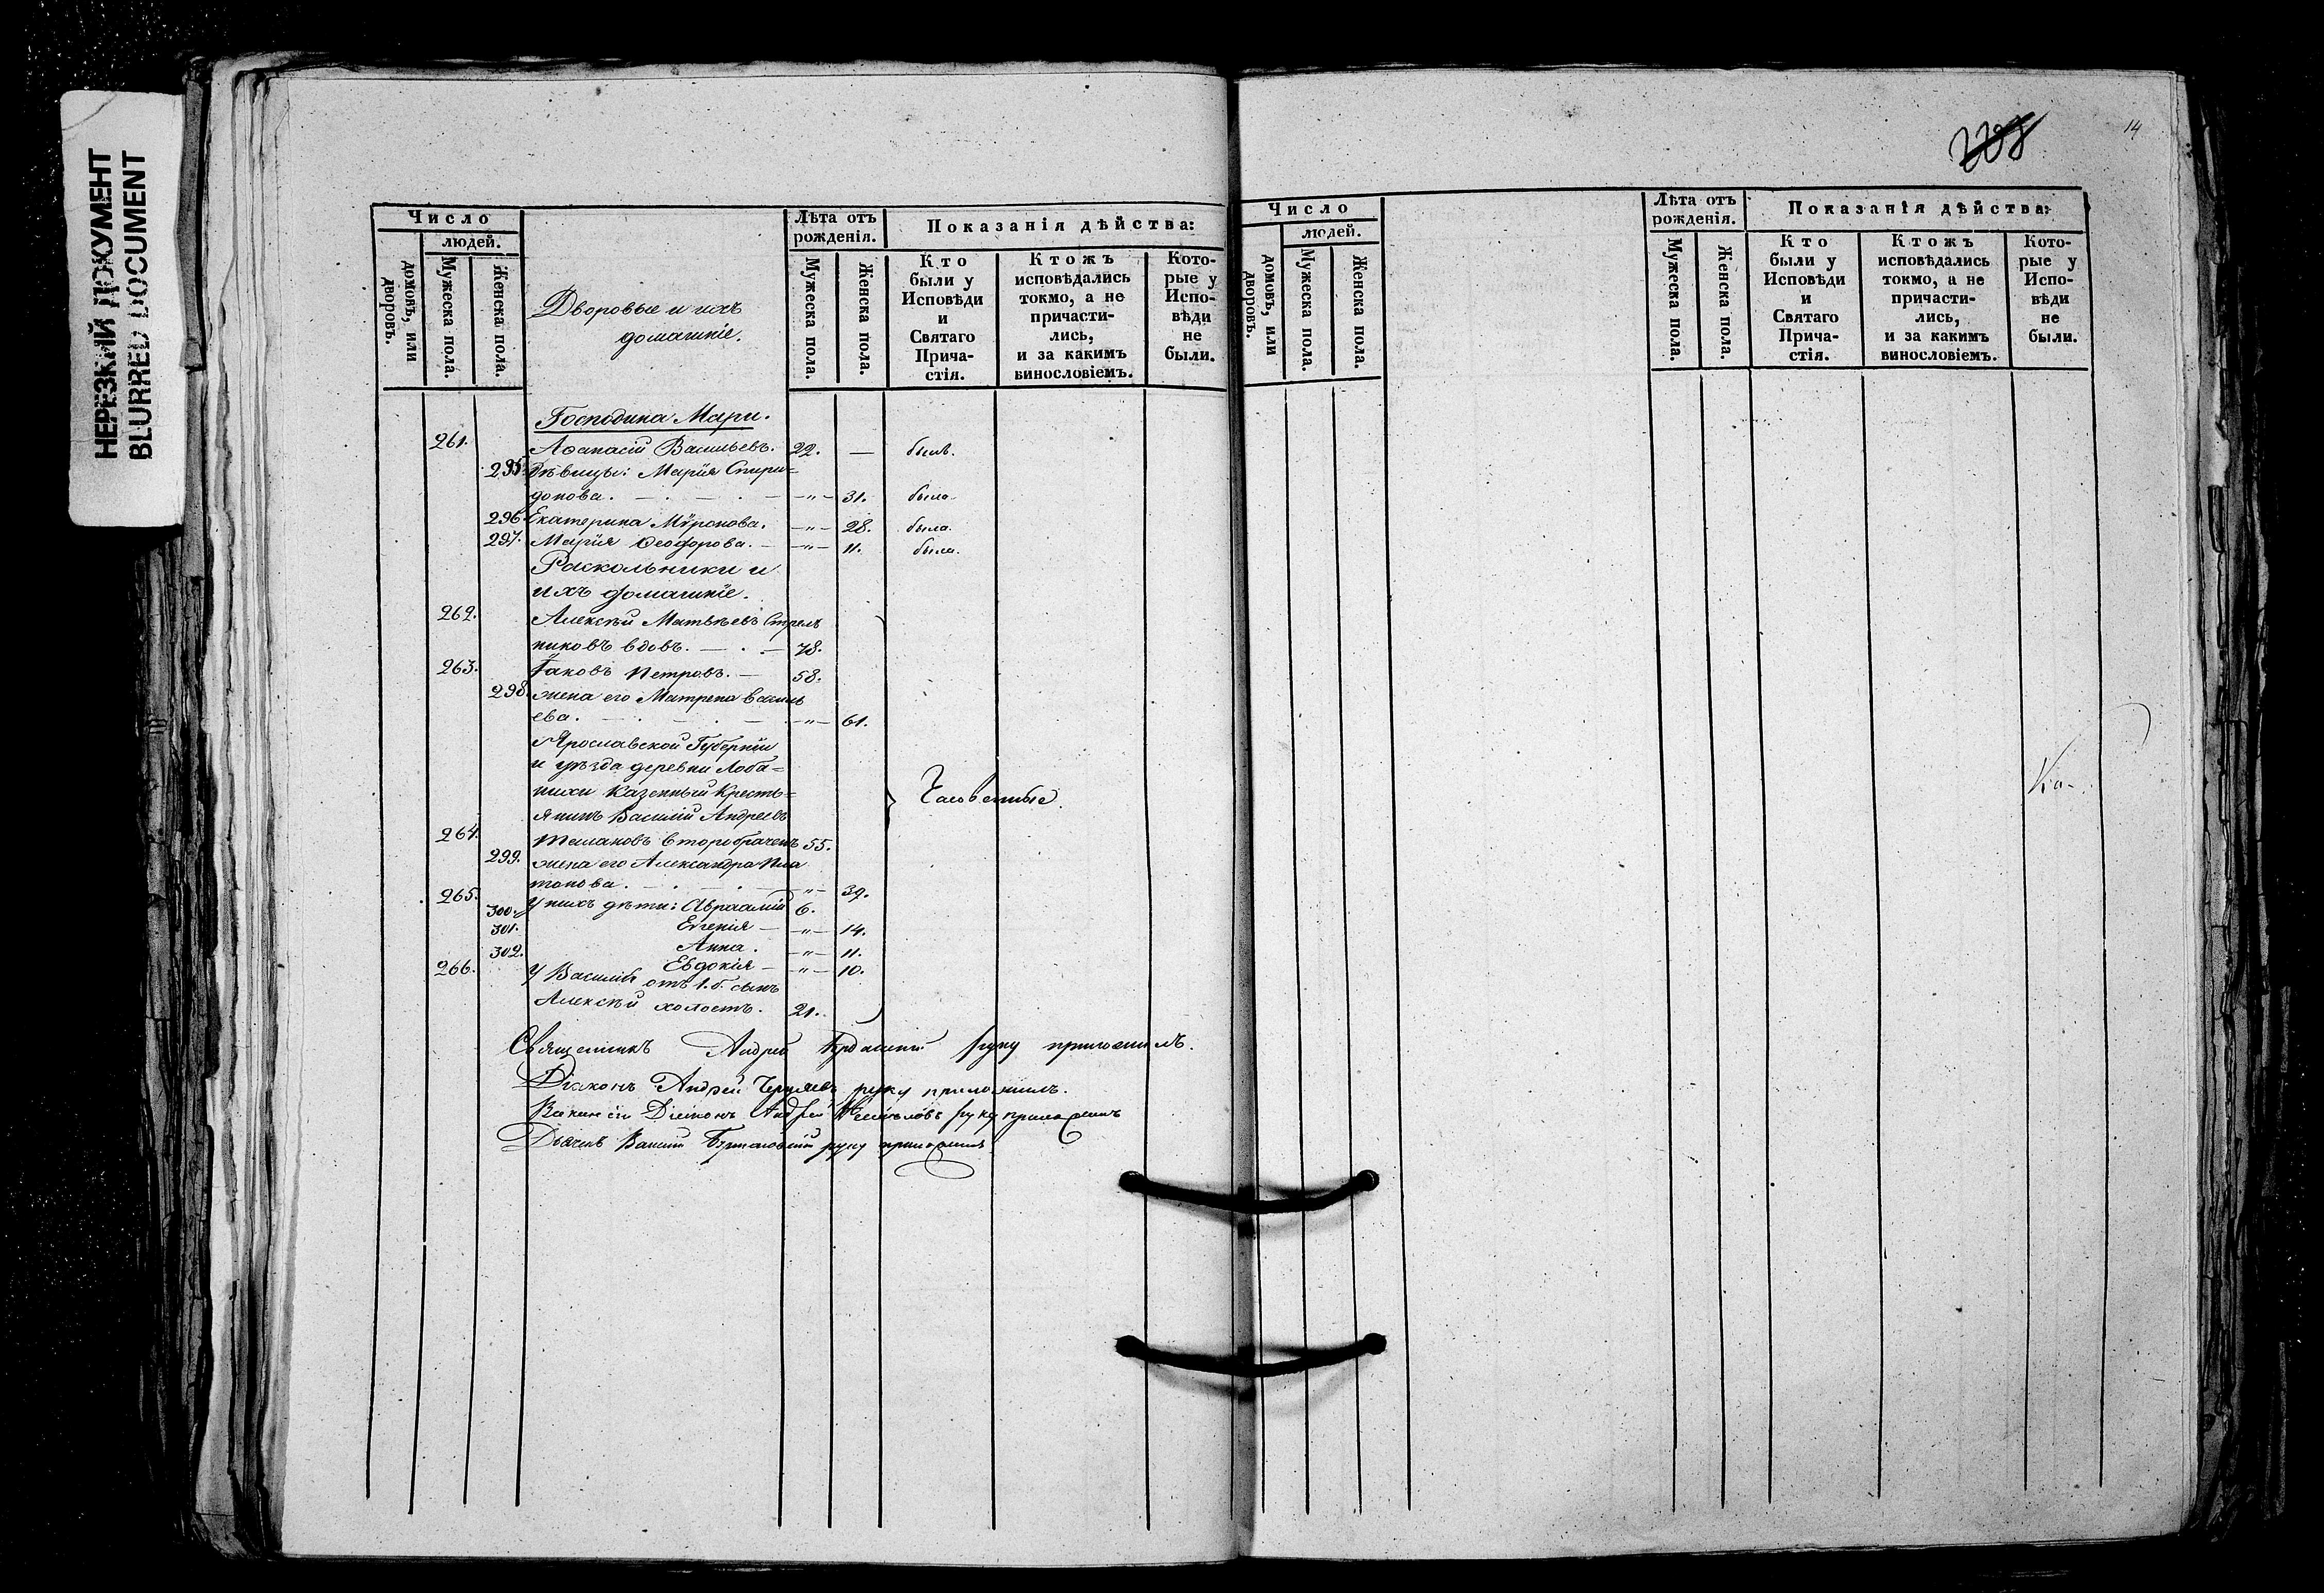 НЕРЕЗКИЙ ДОКУМЕНТ
BLURRED DOCUMENT
Число
людей.
домовъ, или дворовъ.
Мужеска пола.
Женска пола.
Дворовые и ихъ
домашніе.
Лѣта отъ рожденія.
Мужеска пола.
Женска пола.
Показанія дѣйства:
Кто были у Исповѣди и Святаго Прича- стія.
Ктожъ исповѣдались токмо, а не причасти- лись, и за какимъ винословіемъ.
Кото- рые у Испо- вѣди не были.
Господина Мари.
261. Аѳанасій Васильевъ. 22. — былъ.
295. Дѣвицы: Марія Спири=
донова. — " — 31. была.
296. Екатерина Мѵронова. — " — 28. была.
297. Марія Ѳеодорова. — " — 11. была.
Раскольники и
ихъ домашніе.
262. Алексѣй Матвѣевъ Стрель
никовъ вдовъ. — 78.
263. Іаковъ Петровъ. — 58.
298. жена его Матрена Василь
ева. — " — 61.
Ярославской Губерніи
и уѣзда деревни Лоба=
нихи казенный Кресть=
янинъ Василій Андреевъ
Часовенные.
264. второбраченъ 55.
299. жена его Александра Пла
тонова. — " — 39.
265. У нихъ дѣти: Авраамій 6.
300. Евгенія — " — 14.
301. Анна. — " — 11.
302. Евдокія — " — 10.
266. У Василія отъ 1. б. сынъ
Алексѣй холостъ. 21.
Священникъ Андрей руку приложилъ.
Діаконъ Андрей руку приложилъ.
Діаконъ Андрей руку приложилъ
Дьячекъ руку приложилъ
208
14
Число
людей.
домовъ, или дворовъ.
Мужеска пола.
Женска пола.
Лѣта отъ рожденія.
Мужеска пола.
Женска пола.
Показанія дѣйства:
Кто были у Исповѣди и Святаго Прича- стія.
Ктожъ исповѣдались токмо, а не причасти- лись, и за какимъ винословіемъ.
Кото- рые у Испо- вѣди не были.
Ко-